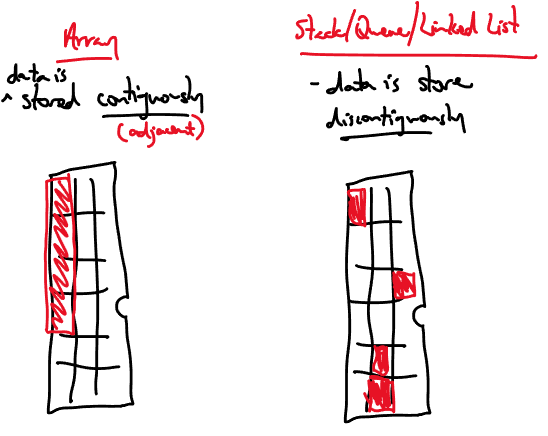 Array
data is
stored contiguously
(adjacent)
Stack/Queue/Linked List
- data is store
discontiguously